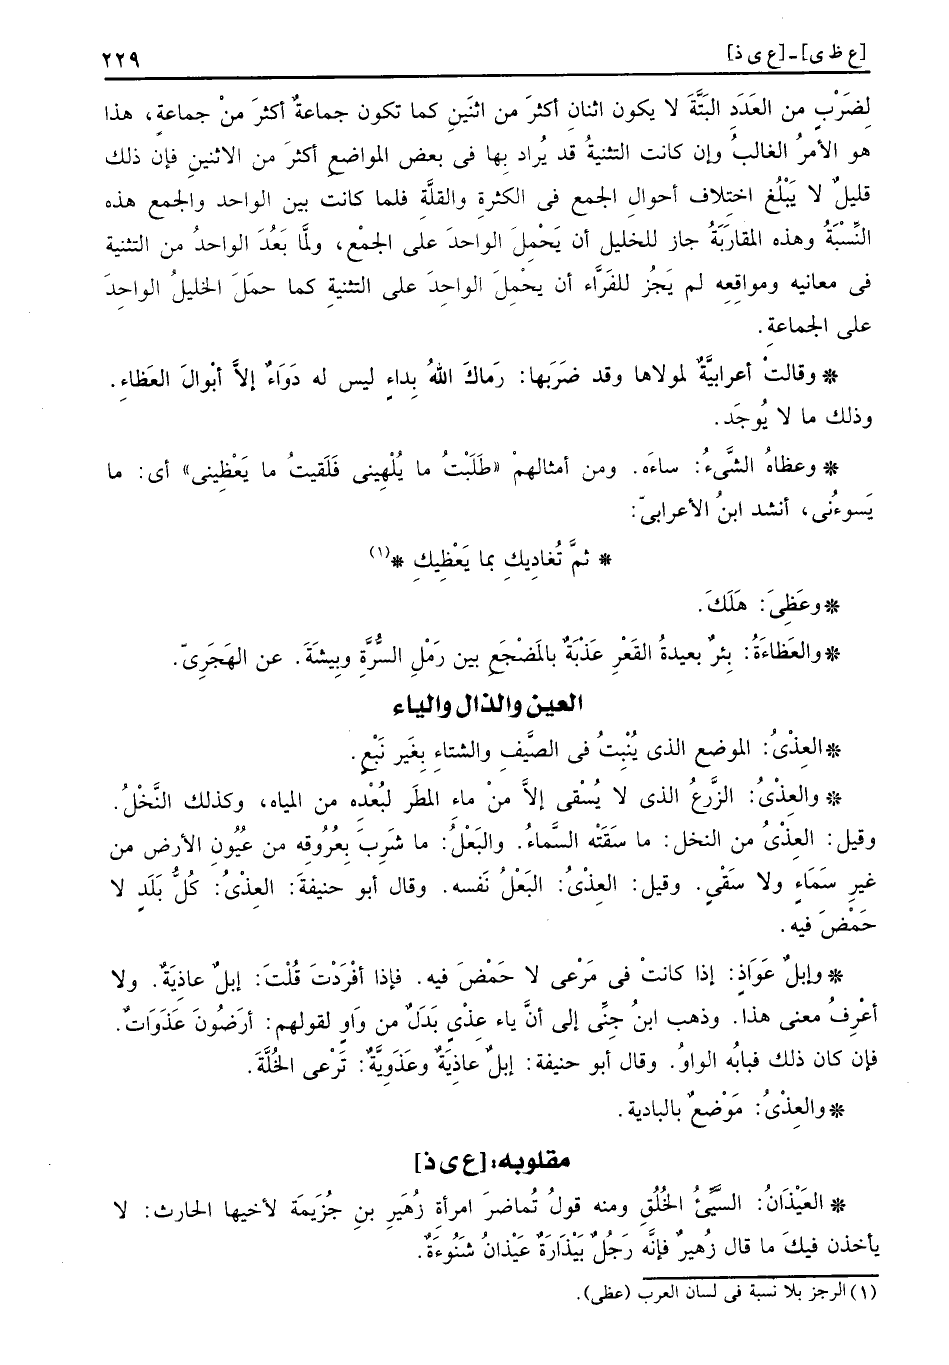 [ع ظ ى] ـ [ع ى ذ]
٢٢٩
لضَرْبٍ من العَدَدِ البَتَّةَ لا يكون اثنان أكثرَ من اثنَينِ كما تكون جماعةٌ أكثرَ منْ جماعةٍ، هذا
هو الأمرُ الغالبُ وإن كانت التثنيةُ قد يُراد بها فى بعض المواضعِ أكثرَ من الاثنينِ فإن ذلك
قليلٌ لا يَبْلُغ اختلاف أحوال الجمع فى الكثرةِ والقلَّة فلما كانت بين الواحد والجمع هذه
النِّسْبَةُ وهذه المقارَبَةُ جاز للخليل أن يَحْمِلَ الواحدَ على الجمْعِ، ولمَّا بَعُدَ الواحدُ من التثنية
فى معانيه ومواقعِه لم يَجُز للفَرَّاء أن يحْمِلَ الواحِدَ على التثنيةِ كما حمَلَ الخليلُ الواحِدَ
على الجماعةِ.
* وقالتْ أعرابيَّةٌ لمولاها وقد ضرَبَها: رَماكَ اللهُ بداءٍ ليس له دَوَاءٌ إلاَّ أبْوالَ العَظاءِ.
وذلك ما لا يُوجَد.
* وعظاهُ الشَّىءُ: ساءَه. ومن أمثالهمْ «طَلَبْتُ ما يُلْهِينى فَلَقيتُ ما يَعْظِينى» أى: ما
يَسوءُنى، أنشد ابنُ الأعرابىّ:
* ثمَّ تُغادِيكِ بما يَعْظِيكِ *(١)
* وعَظِىَ: هَلَكَ.
* والعَظاءَةُ: بئرٌ بعيدةُ القَعْرِ عَذْبَةٌ بالمَضْجَعِ بين رَمْلِ السُّرَّةِ وبِيشَةَ. عن الهَجَرِىّ.
العين والذال والياء
* العِذْىُ: الموضع الذى يُنْبِتُ فى الصَّيفِ والشتاءِ بِغَير نَبْعٍ.
* والعِذْىُ: الزَّرعُ الذى لا يُسْقى إلاَّ منْ ماءِ المطَر لبُعْدِه من المياه، وكذلك النَّخْلُ.
وقيل: العِذْىُ من النخل: ما سقَتْه السَّماءُ. والبَعْلُ: ما شرِبَ بِعُرُوقِه من عيُونِ الأرض من
غير سَمَاءٍ ولا سَقْىٍ. وقيل: العِذْىُ: البَعْلُ نَفسه. وقال أبو حنيفةَ: العِذْىُ: كلُّ بَلَدٍ لا
حَمْضَ فيه.
* وإبلٌ عَوَاذٍ: إذا كانتْ فى مَرْعى لا حَمْضَ فيه. فإذا أفْرَدْتَ قُلْتَ: إبلٌ عاذيَةٌ. ولا
أعْرِفُ معنى هذا. وذهب ابنُ جنِّى إلى أنَّ ياء عِذْىٍ بَدَلٌ من وَاوٍ لقولهم: أرَضُونَ عَذَوَاتٌ.
فإن كان ذلك فبابُه الواوُ. وقال أبو حنيفة: إبلٌ عاذِيَةٌ وعَذَوِيَّةٌ: تَرْعى الخُلَّةَ.
* والعِذْىُ: مَوْضعٌ بالبادية.
مقلوبه: [ع ى ذ]
* العَيْذَانُ: السيِّئُ الخُلُقِ ومنه قولُ تُماضرَ امرأةِ زُهَيرِ بنِ جُزَيمَة لأخيها الحارث: لا
يأخذن فيكَ ما قال زُهيرٌ فإنَّه رَجُلٌ بَيْذَارَةٌ عَيْذانُ شَنُوءَةٌ.
(١) الرجز بلا نسبة فى لسان العرب (عظى).